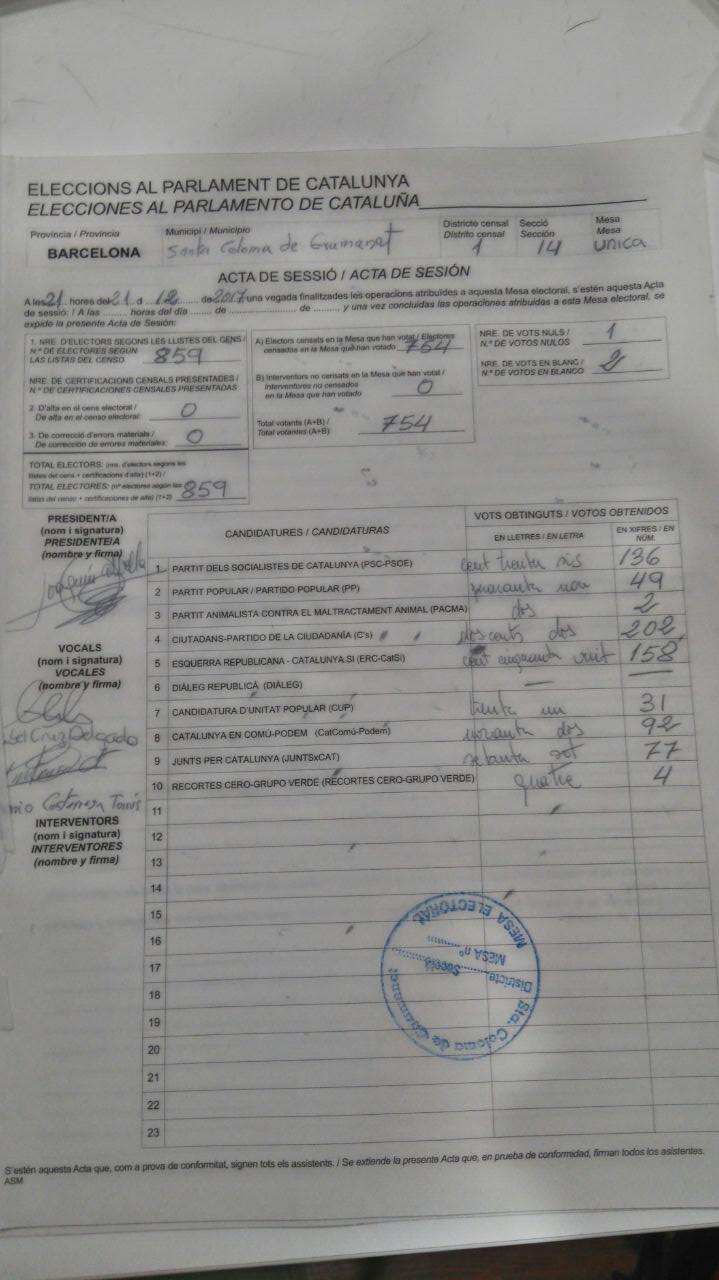 ELECCIONS AL PARLAMENT DE CATALUNYA
ELECCIONES AL PARLAMENTO DE CATALUÑA
Provincia / Provincia
BARCELONA
Municipi / Municipio
Santa Coloma de Gramanet
Districte censal
Distrito censal
1
Secció
Sección
14
Mesa
Mesa
unica
ACTA DE SESSIÓ / ACTA DE SESIÓN
A les 21 hores del 21 d 12 de 2017 una vegada finalitzades les operacions atribuïdes a aquesta Mesa electoral, s'estén aquesta Acta
de sessió: / A las ........ horas del día ........ de ........ de ........ y una vez concluidas las operaciones atribuidas a esta Mesa electoral, se
expide la presente Acta de Sesión:
1. NRE. D'ELECTORS SEGONS LES LLISTES DEL CENS /
N.º DE ELECTORES SEGÚN
LAS LISTAS DEL CENSO 859
NRE. DE CERTIFICACIONS CENSALS PRESENTADES /
N.º DE CERTIFICACIONES CENSALES PRESENTADAS
2. D'alta en el cens electoral /
De alta en el censo electoral: 0
3. De correcció d'errors materials /
De corrección de errores materiales: 0
TOTAL ELECTORS: (nre. d'electors segons les
llistes del cens + certificacions d'alta) (1+2) /
TOTAL ELECTORES: (nº electores según las
listas del censo + certificaciones de alta) (1+2) 859
A) Electors censats en la Mesa que han votat / Electores
censados en la Mesa que han votado 754
B) Interventors no censats en la Mesa que han votat /
Interventores no censados
en la Mesa que han votado 0
Total votants (A+B) /
Total votantes (A+B) 754
NRE. DE VOTS NULS /
N.º DE VOTOS NULOS 1
NRE. DE VOTS EN BLANC /
N.º DE VOTOS EN BLANCO 2
PRESIDENT/A
(nom i signatura)
PRESIDENTE/A
(nombre y firma)
VOCALS
(nom i signatura)
VOCALES
(nombre y firma)
Cruz Delgado
INTERVENTORS
(nom i signatura)
INTERVENTORES
(nombre y firma)
CANDIDATURES / CANDIDATURAS
VOTS OBTINGUTS / VOTOS OBTENIDOS
EN LLETRES / EN LETRA
EN XIFRES / EN NÚM.
1 PARTIT DELS SOCIALISTES DE CATALUNYA (PSC-PSOE) cent trenta sis 136
2 PARTIT POPULAR / PARTIDO POPULAR (PP) quaranta nou 49
3 PARTIT ANIMALISTA CONTRA EL MALTRACTAMENT ANIMAL (PACMA) dos 2
4 CIUTADANS-PARTIDO DE LA CIUDADANÍA (C's) dos cents dos 202
5 ESQUERRA REPUBLICANA - CATALUNYA SÍ (ERC-CatSí) cent cinquanta vuit 158
6 DIÀLEG REPUBLICÀ (DIÀLEG) —
7 CANDIDATURA D'UNITAT POPULAR (CUP) trenta un 31
8 CATALUNYA EN COMÚ-PODEM (CatComú-Podem) noranta dos 92
9 JUNTS PER CATALUNYA (JUNTSxCAT) setanta set 77
10 RECORTES CERO-GRUPO VERDE (RECORTES CERO-GRUPO VERDE) quatre 4
11
12
13
14
15
16
17
18
19
20
21
22
23
MESA ELECTORAL
MESA nº
Secció
Districte
Sta. Coloma de Gramenet
S'estén aquesta Acta que, com a prova de conformitat, signen tots els assistents. / Se extiende la presente Acta que, en prueba de conformidad, firman todos los asistentes.
ASM